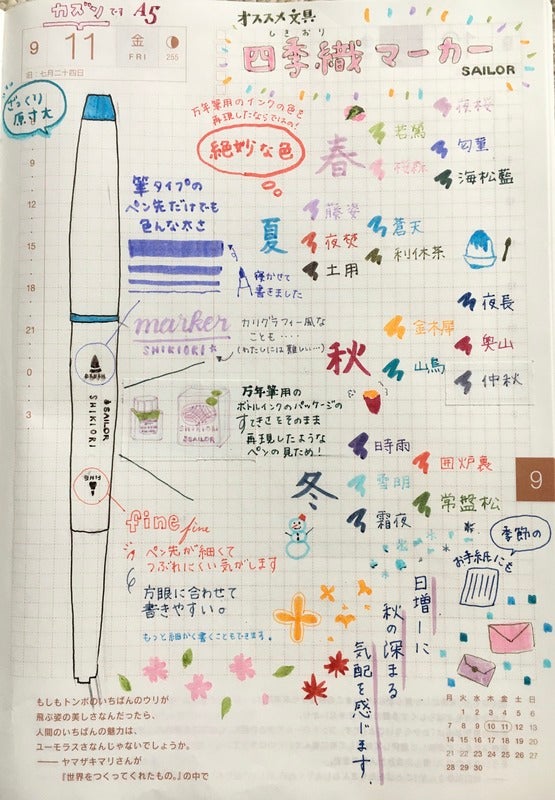 カズンです A5
9 11 金 FRI 255
旧:七月二十四日
オススメ文具
しきおり
四季織マーカー
SAILOR
ざっくり
原寸大
万年筆用のインクの色を
再現したならではの!
絶妙な色
筆タイプの
ペン先だけでも
色んな太さ
寝かせて
書きました
marker
SHIKIORI☆
カリグラフィー風な
ことも‥‥
(わたしには難しい…)
万年筆用の
ボトルインクのパッケージの
すてきさをそのまま
再現したような
ペンの見ため!
SHIKIORI
SAILOR
春
夜桜
若鶯
匂菫
桜森
海松藍
夏
藤姿
蒼天
夜焚
利休茶
土用
秋
夜長
金木犀
奥山
山鳥
仲秋
冬
時雨
囲炉裏
雪明
常盤松
霜夜
BRUSH
SAILOR
SHIKIORI
FINE
fine fine
ペン先が細くて
つぶれにくい気がします
方眼に合わせて
書きやすい。
もっと細かく書くこともできます。
季節の
お手紙にも
日増しに
秋の深まる
気配を感じます。
9
12
15
18
21
0
3
9
もしもトンボのいちばんのウリが
飛ぶ姿の美しさなんだったら、
人間のいちばんの魅力は、
ユーモラスさなんじゃないでしょうか。
── ヤマザキマリさんが
『世界をつくってくれたもの。』の中で
月 火 水 木 金 土 日
1 2 3 4 5 6
7 8 9 10 11 12 13
14 15 16 17 18 19 20
21 22 23 24 25 26 27
28 29 30